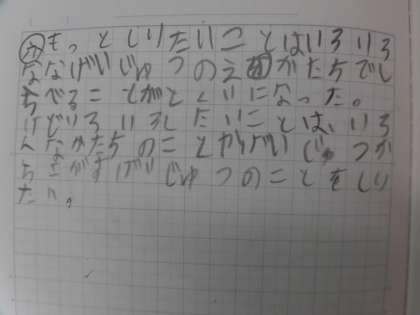 ㋕もっとしりたいことはいろいろ
ななげいじゅつのえ がたちでし
ちべることがとくいになった。
けどいろいろしたいことは、いろ
んなかたちのことやげいじゅつか
ちをがすげいじゅつのことをしり
たい。